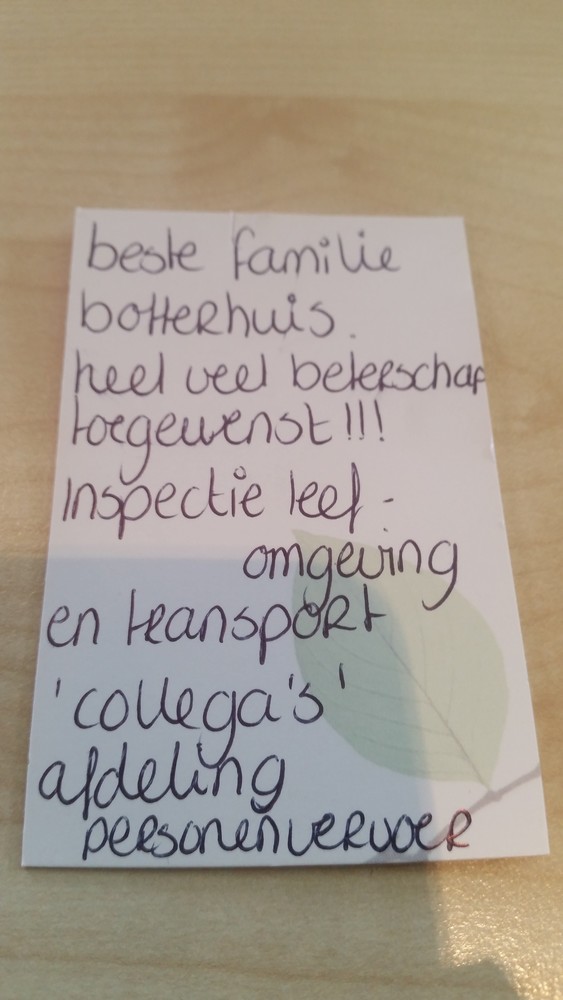 beste familie
botterhuis.
heel veel beterschap
toegewenst!!!
Inspectie leef-
omgeving
en transport
'collega's'
afdeling
personenvervoer